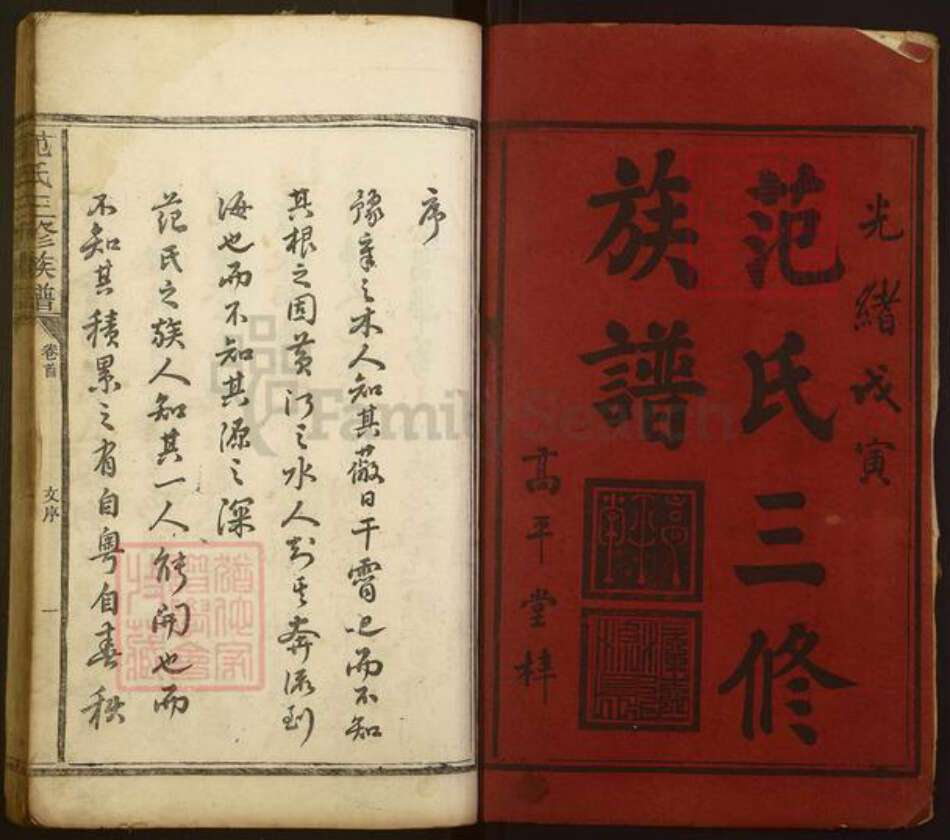 光緒戊寅
范氏三修
族譜
高平堂梓
序
豫章之木人知其蔽日干霄也而不知
其根之固黃河之水人知其奔流到
海也而不知其源之深
范氏之族人知其一人所開也而
不知其積累之有自粵自春秋
范氏三修族譜
卷首
文序
一
FamilySearch